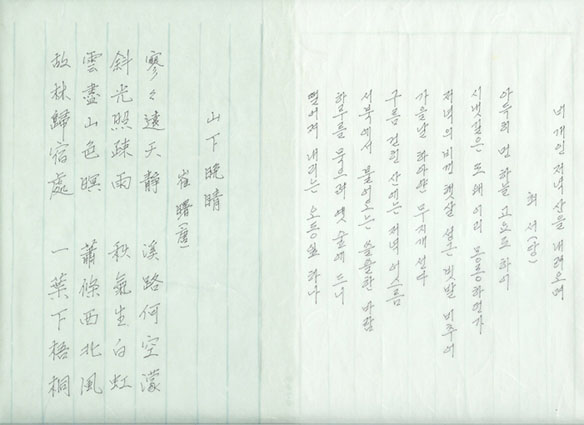 비 개인 저녁 산을 내려오며
최 서(당)
아득히 먼 하늘 고요도 하여
시냇길은 또 왜 이리 몽롱하던가
저녁의 비낀 햇살 성근 빗발 비추어
가을날 하이얀 무지개 섰다
구름 걷힌 산에는 저녁 어스름
서북에서 불어오는 쓸쓸한 바람
하루를 묵으려 옛 숲에 드니
떨어져 내리는 오동잎 하나
山下晩晴
崔曙(唐)
寥々遠天靜 溪路何空濛
斜光照疎雨 秋氣生白虹
雲盡山色暝 蕭條西北風
故林歸宿處 一葉下梧桐